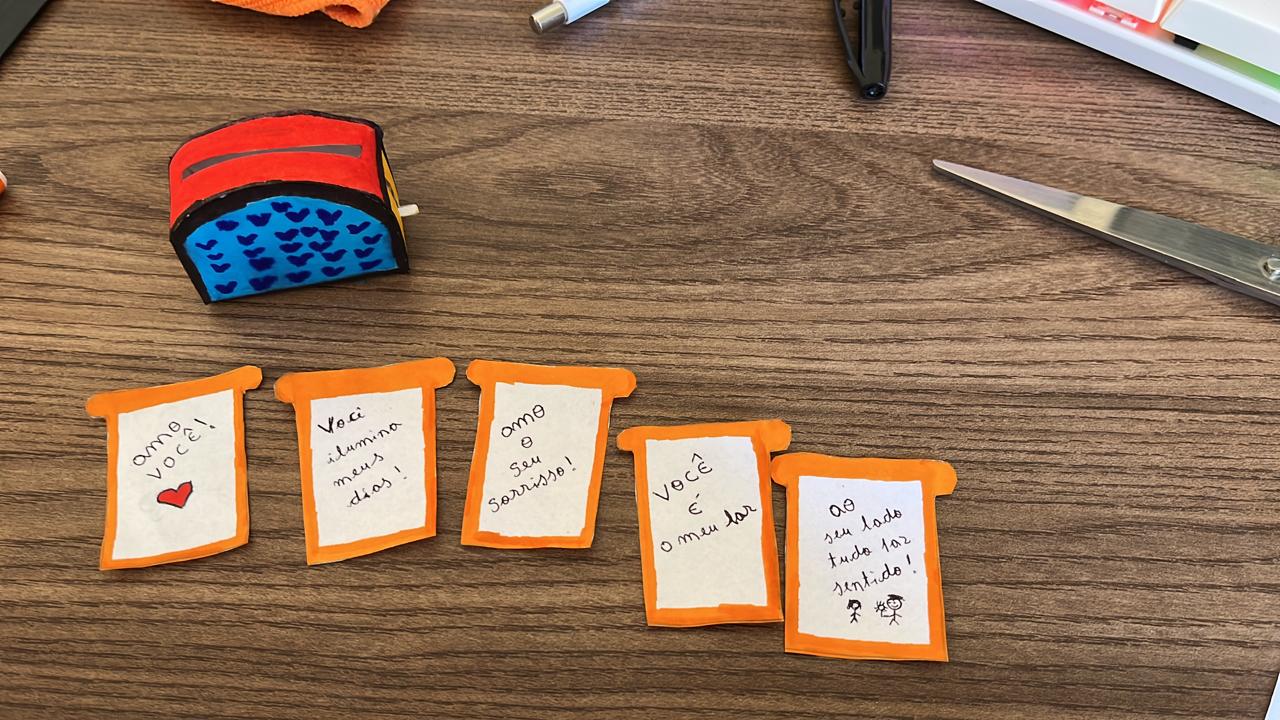 amo
você!
Você
ilumina
meus
dias!
amo
o
seu
sorriso!
VOCÊ
É
o meu lar
ao
seu lado
tudo faz
sentido!